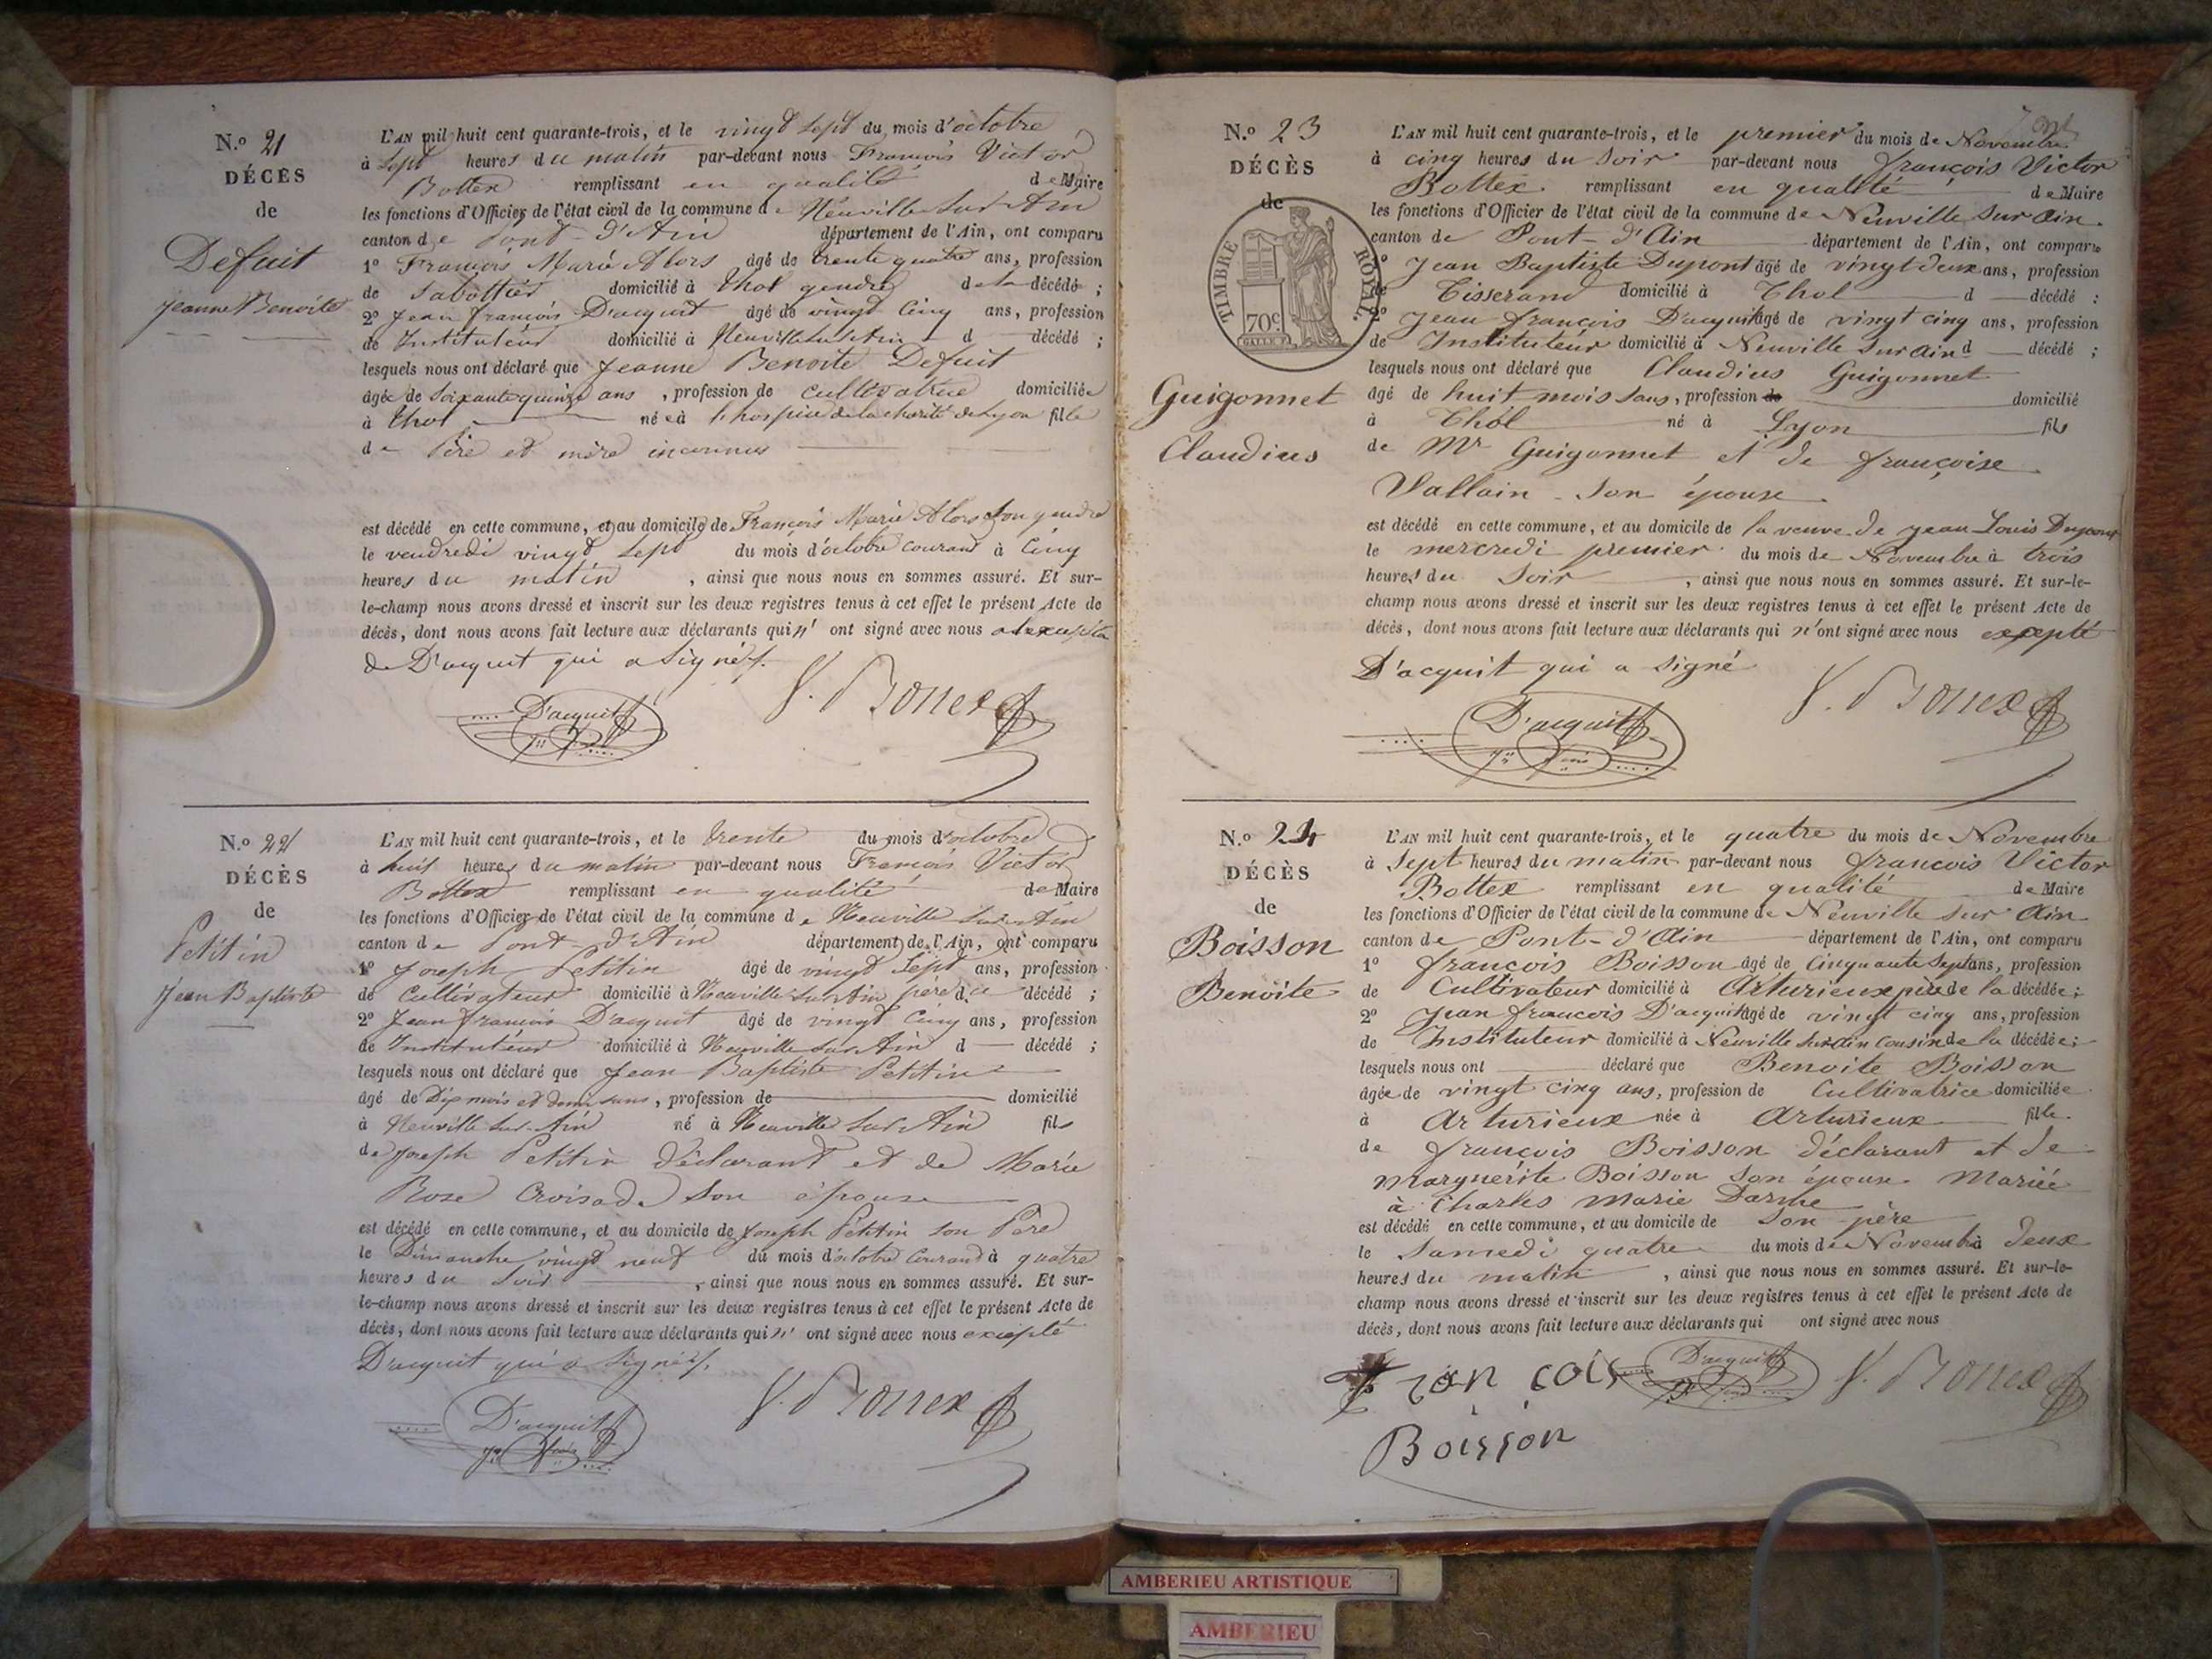 N.º 21
DÉCÈS
de
Defuit
Jeanne Benoite
L'AN mil huit cent quarante-trois, et le vingt sept du mois d'octobre
à sept heures du matin par-devant nous François Victor
Bottex remplissant en qualité de Maire
les fonctions d'Officier de l'état civil de la commune de Neuville sur Ain
canton de Pont-d'Ain département de l'Ain, ont comparu
1º François Marie Alors âgé de trente quatre ans, profession
de Sabottier domicilié à Thol gendre de la décédé ;
2º Jean françois D'acquit âgé de vingt cinq ans, profession
de Instituteur domicilié à Neuville sur Ain d décédé ;
lesquels nous ont déclaré que Jeanne Benoite Defuit
âgée de soixante quinze ans, profession de cultivatrice domiciliée
à Thol née à l'hospice de la charité de Lyon fille
de Père et mère inconnus
est décédé en cette commune, et au domicile de François Marie Alors son gendre
le vendredi vingt sept du mois d'octobre courant à cinq
heures du matin, ainsi que nous nous en sommes assuré. Et sur-
le-champ nous avons dressé et inscrit sur les deux registres tenus à cet effet le présent Acte de
décès, dont nous avons fait lecture aux déclarants qui n' ont signé avec nous
de D'acquit qui a signé.
D'acquit
V. Bottex
N.º 22
DÉCÈS
de
Petitin
Jean Baptiste
L'AN mil huit cent quarante-trois, et le trente du mois d'octobre
à huit heures du matin par-devant nous François Victor
Bottex remplissant en qualité de Maire
les fonctions d'Officier de l'état civil de la commune de Neuville sur Ain
canton de Pont-d'Ain département de l'Ain, ont comparu
1º Joseph Petitin âgé de vingt sept ans, profession
de Cultivateur domicilié à Neuville sur Ain pere du décédé ;
2º Jean françois D'acquit âgé de vingt cinq ans, profession
de Instituteur domicilié à Neuville sur Ain d décédé ;
lesquels nous ont déclaré que Jean Baptiste Petitin
âgé de Dix mois et demi sans, profession de domicilié
à Neuville sur Ain né à Neuville sur Ain fils
de Joseph Petitin déclarant et de Marie
Rose Croisade son épouse
est décédé en cette commune, et au domicile de Joseph Petitin son Père
le Dimanche vingt neuf du mois d'octobre courant à quatre
heures du soir, ainsi que nous nous en sommes assuré. Et sur-
le-champ nous avons dressé et inscrit sur les deux registres tenus à cet effet le présent Acte de
décès, dont nous avons fait lecture aux déclarants qui n' ont signé avec nous excepté
D'acquit qui a signé.
D'acquit
V. Bottex
N.º 23
DÉCÈS
de
TIMBRE ROYAL
70c
Guigonnet
Claudius
L'AN mil huit cent quarante-trois, et le premier du mois de Novembre
à cinq heures du soir par-devant nous françois Victor
Bottex remplissant en qualité de Maire
les fonctions d'Officier de l'état civil de la commune de Neuville sur Ain
canton de Pont-d'Ain département de l'Ain, ont comparu
1º Jean Baptiste Dupont âgé de vingt deux ans, profession
de Tisserand domicilié à Thol d décédé ;
2º Jean françois D'acquit âgé de vingt cinq ans, profession
de Instituteur domicilié à Neuville sur ain d décédé ;
lesquels nous ont déclaré que Claudius Guigonnet
âgé de huit mois sans, profession de domicilié
à Thol né à Lyon fils
de Mr Guigonnet et de françoise
Vallain son épouse
est décédé en cette commune, et au domicile de la veuve de jean Louis Dupont
le mercredi premier du mois de Novembre à trois
heures du soir, ainsi que nous nous en sommes assuré. Et sur-le-
champ nous avons dressé et inscrit sur les deux registres tenus à cet effet le présent Acte de
décès, dont nous avons fait lecture aux déclarants qui n'ont signé avec nous excepté
D'acquit qui a signé
D'acquit
V. Bottex
N.º 24
DÉCÈS
de
Boisson
Benoite
L'AN mil huit cent quarante-trois, et le quatre du mois de Novembre
à sept heures du matin par-devant nous françois Victor
Bottex remplissant en qualité de Maire
les fonctions d'Officier de l'état civil de la commune de Neuville sur Ain
canton de Pont-d'Ain département de l'Ain, ont comparu
1º françois Boisson âgé de cinquante sept ans, profession
de Cultivateur domicilié à Arturieux père de la décédée ;
2º Jean francois D'acquit âgé de vingt cinq ans, profession
de Instituteur domicilié à Neuville sur Ain cousin de la décédée ;
lesquels nous ont déclaré que Benoite Boisson
âgée de vingt cinq ans, profession de Cultivatrice domiciliée
à Arturieux née à Arturieux fille
de françois Boisson déclarant et de
Marguerite Boisson son épouse Mariée
à Charles Marie Darme
est décédé en cette commune, et au domicile de son père
le samedi quatre du mois de Novembre à deux
heures du matin, ainsi que nous nous en sommes assuré. Et sur-le-
champ nous avons dressé et inscrit sur les deux registres tenus à cet effet le présent Acte de
décès, dont nous avons fait lecture aux déclarants qui ont signé avec nous
françois
Boisson
D'acquit
V. Bottex
AMBERIEU ARTISTIQUE
AMBERIEU